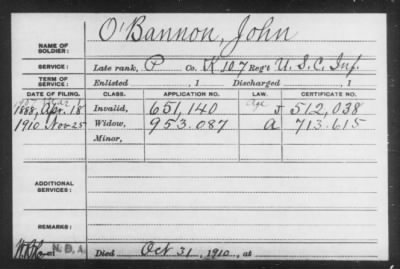 O'Bannon, John
NAME OF
SOLDIER:
SERVICE: Late rank, P Co. K 107 Reg't U. S. C. Inf.
TERM OF
SERVICE: Enlisted , 1 Discharged , 1
DATE OF FILING. CLASS. APPLICATION NO. LAW. CERTIFICATE NO.
1888, Apr. 18 Invalid, 651,140 Age J 512,038
1910 Nov 25 Widow, 953.087 A 713.615
Minor,
ADDITIONAL
SERVICES:
REMARKS:
N. D. A.
Died Oct 31, 1910, at